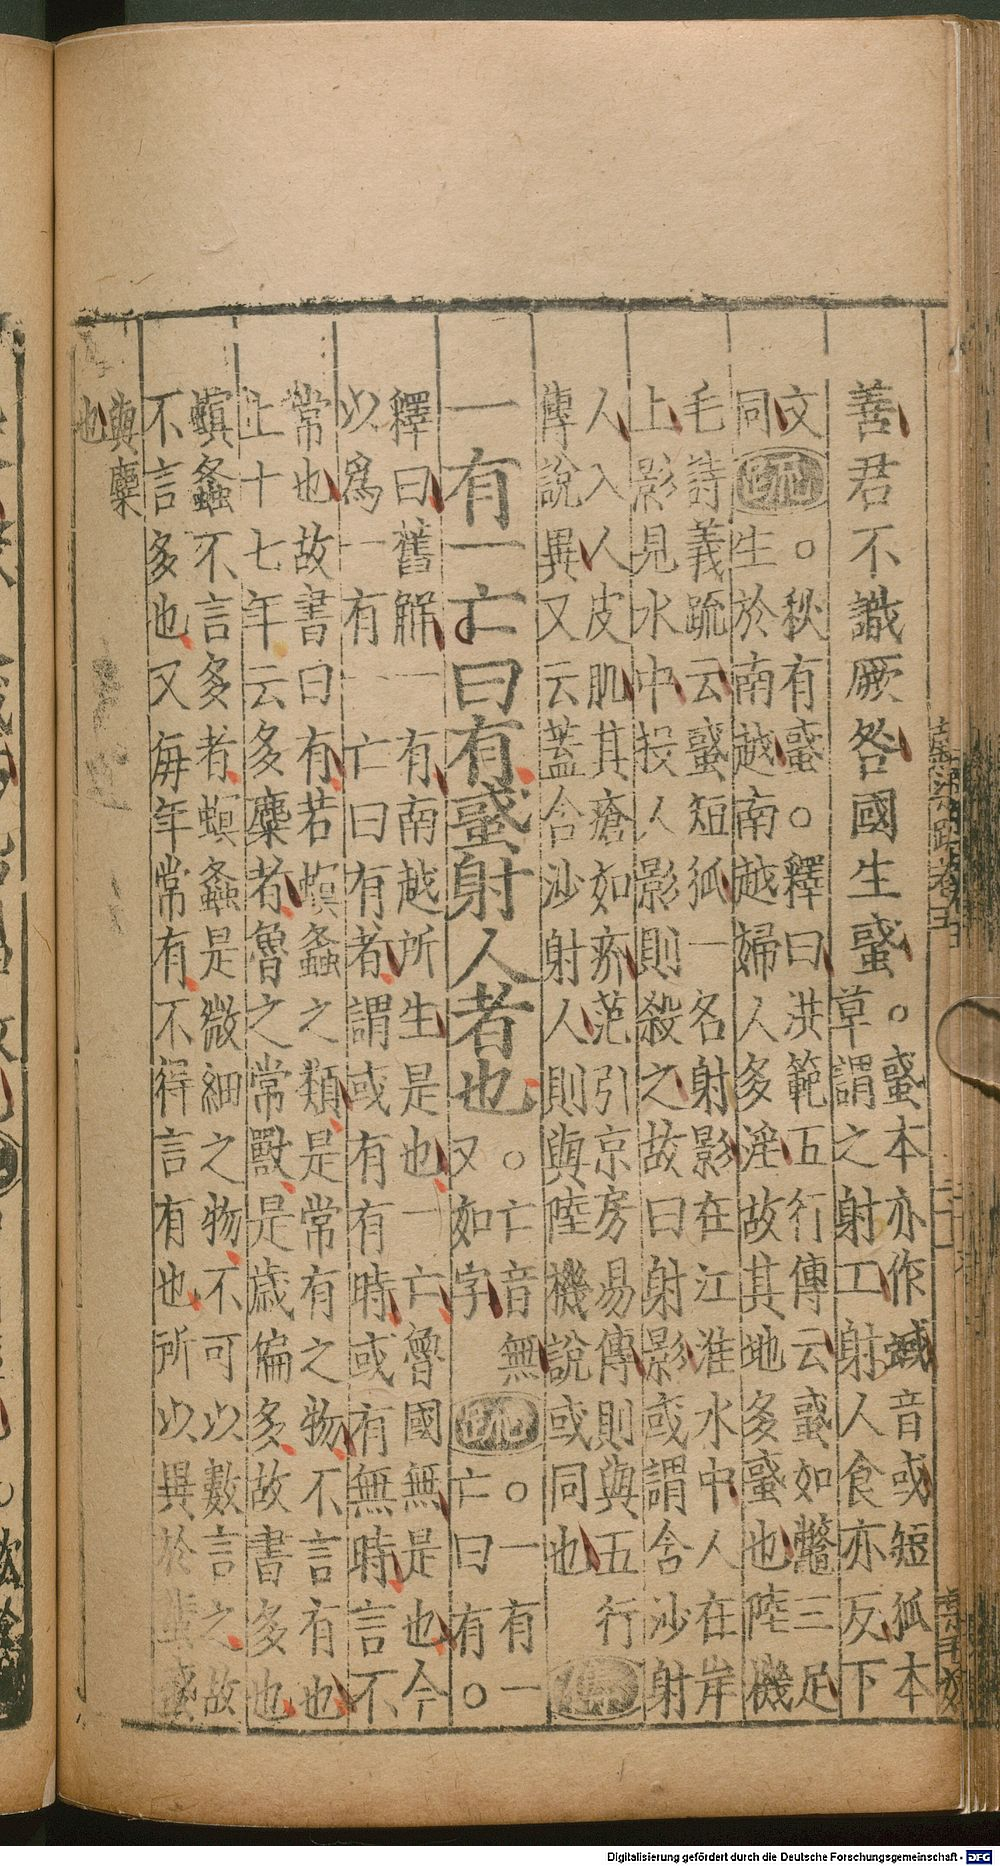 善君不識厥咎國生蜮。蜮本亦作蟈音或短狐本
草謂之射工射人食亦反下
文。秋有蜮。釋曰洪範五行傳云蜮如鼈三足
同疏生於南越南越婦人多淫故其地多蜮也陸機
毛詩義疏云蜮短狐一名射影在江淮水中人在岸
上影見水中投人影則殺之故曰射影或謂含沙射
人入人皮肌其瘡如疥范引京房易傳則與五行
傳說異又云蓋含沙射人則與陸機說或同也傳
一有一亡曰有蜮射人者也。亡音無。一有一
又如字疏亡曰有。
釋曰舊解一有南越所生是也一亡魯國無是也今
以爲一有一亡曰有者謂或有有時或有無時言不
常也故書曰有若螟螽之類是常有之物不言有也
上十七年云多麋者魯之常獸是歲偏多故書多也
螟螽不言多者螟螽是微細之物不可以數言之故
不言多也又每年常有不得言有也所以異於蜚蜮
與麋
也
Digitalisierung gefördert durch die Deutsche Forschungsgemeinschaft - DFG